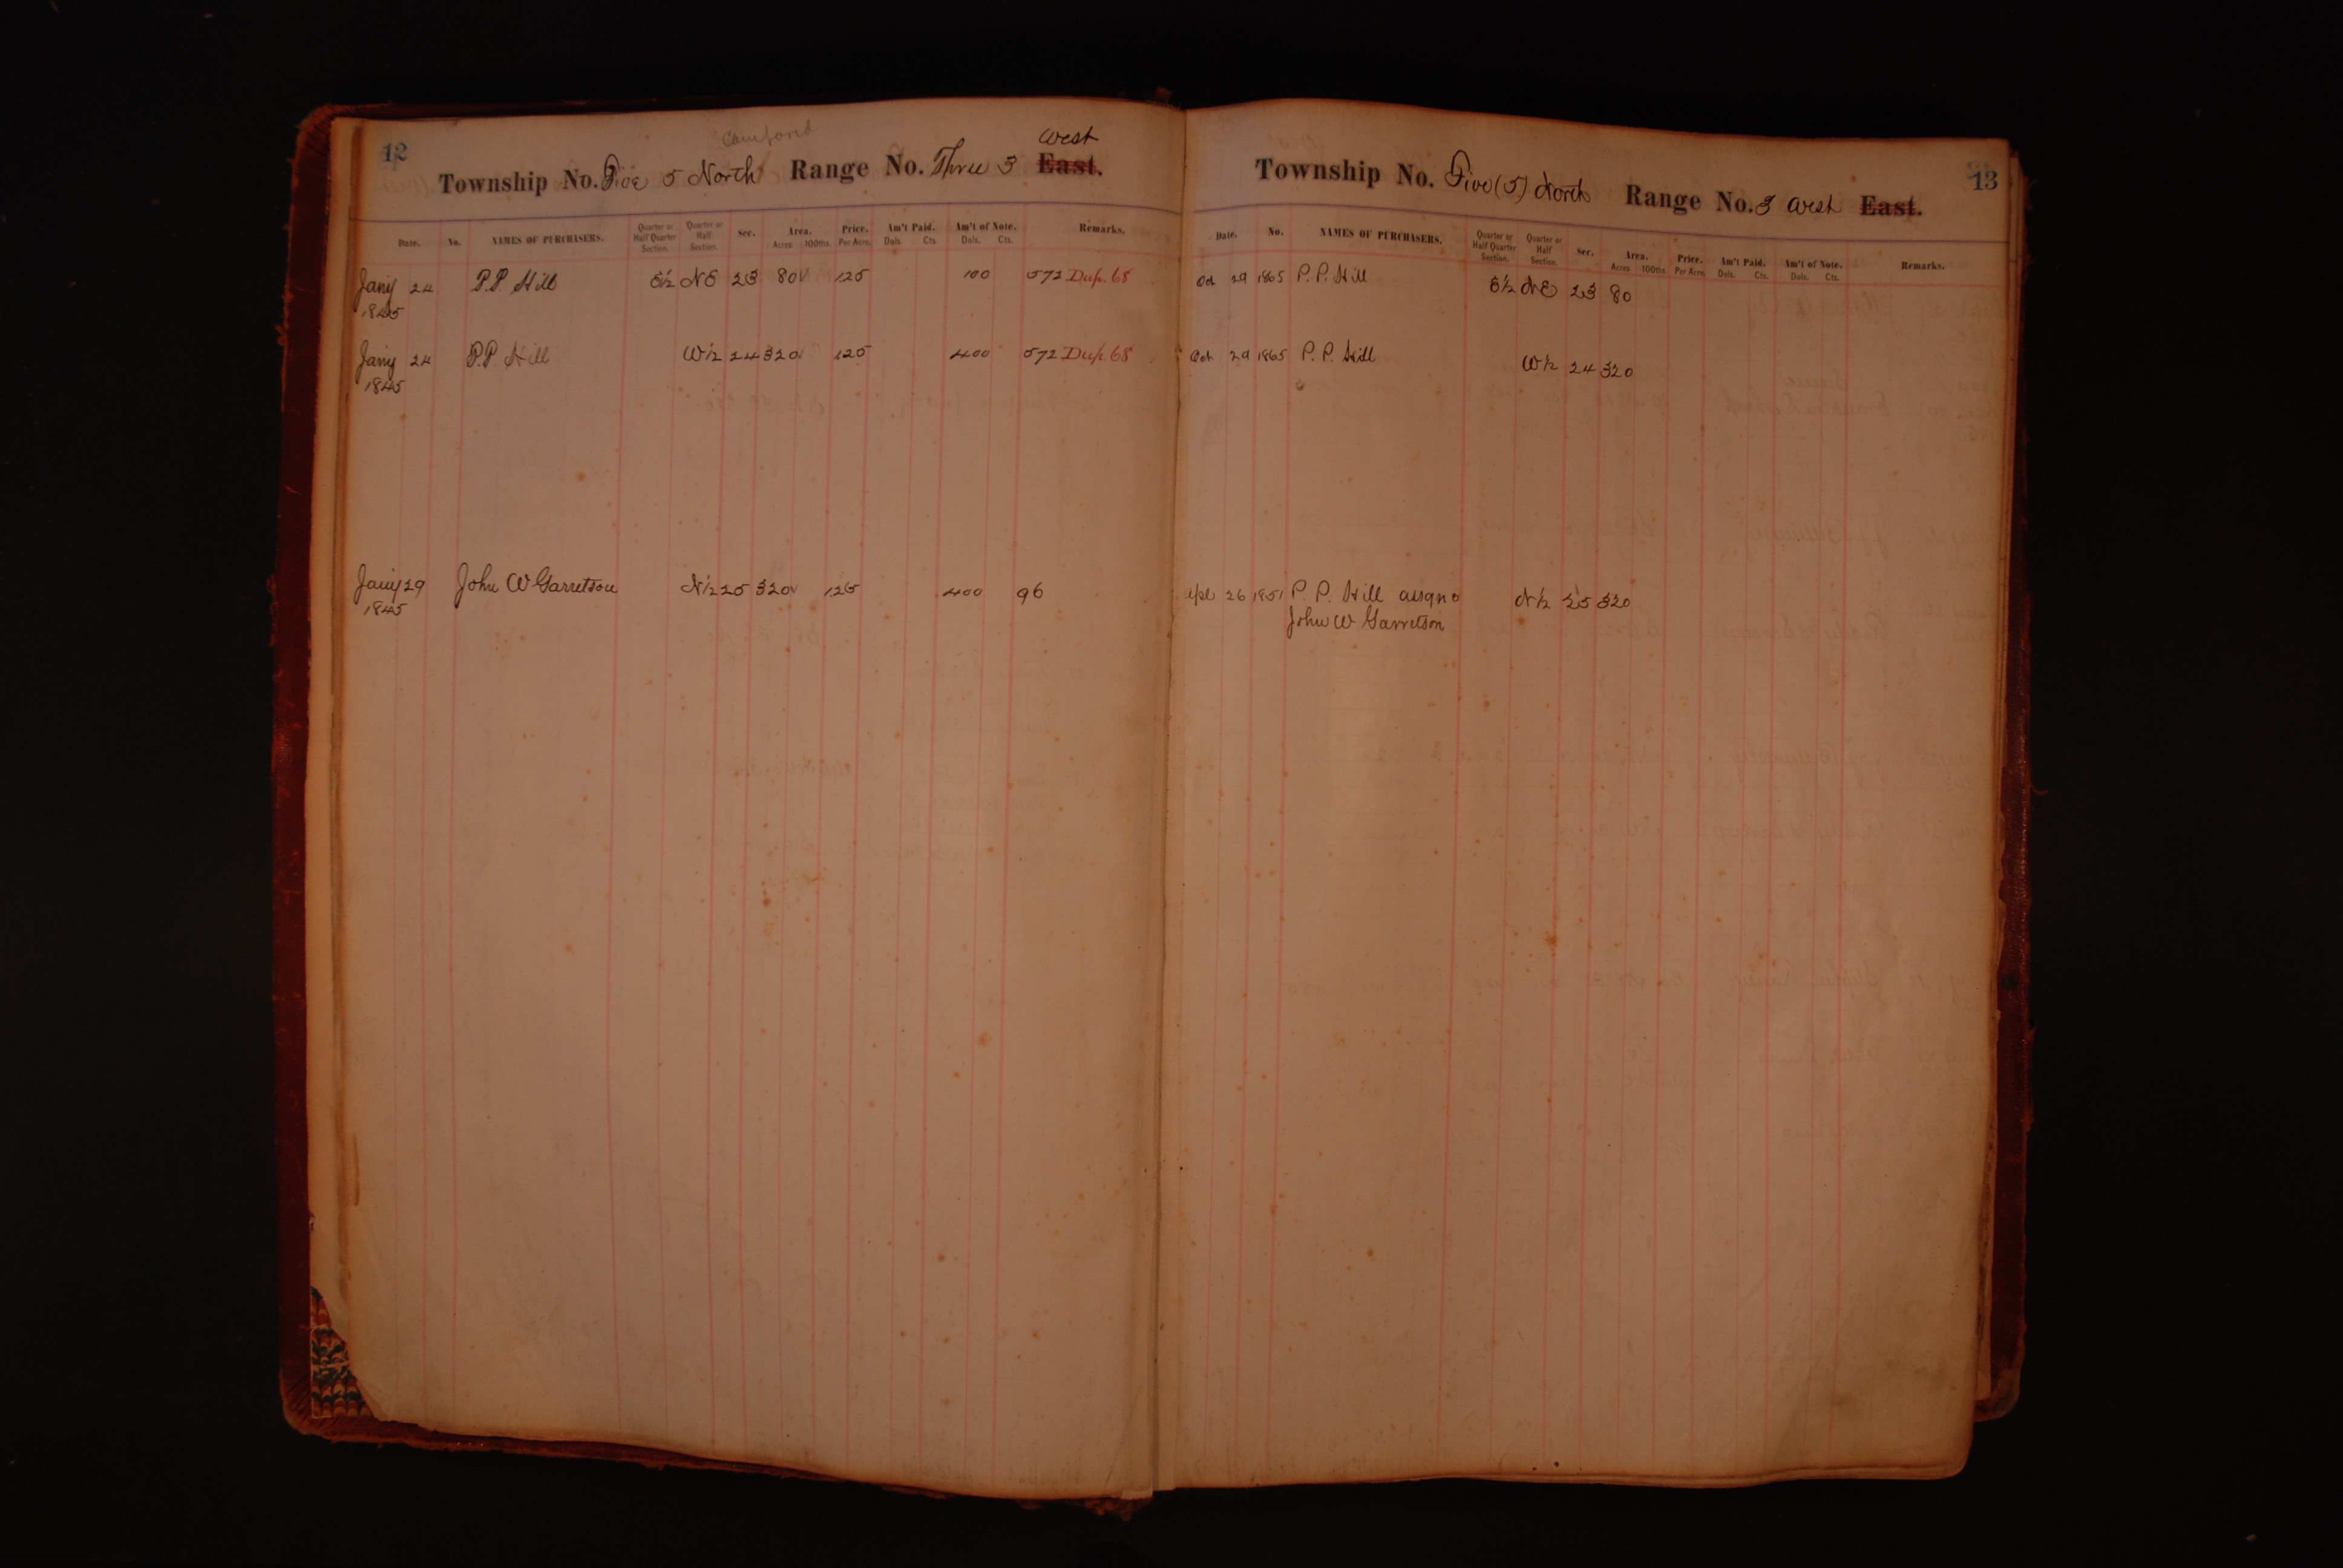 12
Compared
West
Township No. Five 5 North Range No. Three 3 East.
Date. No. NAMES OF PURCHASERS. Quarter or Half Quarter Section. Quarter or Half Section. Sec. Area. Acres 100ths. Price. Per Acre. Am't Paid. Dols. Cts. Am't of Note. Dols. Cts. Remarks.
Jany 24 P.P. Hill E½ NE 23 80 125 100 572 Dup. 68
1845
Jany 24 P.P. Hill W½ 24 320 125 400 572 Dup. 68
1845
Jany 29 John W Garretson N½ 25 320 125 400 96
1845
13
Township No. Five (5) North Range No. 3 West East.
Date. No. NAMES OF PURCHASERS. Quarter or Half Quarter Section. Quarter or Half Section. Sec. Area. Acres 100ths. Price. Per Acre. Am't Paid. Dols. Cts. Am't of Note. Dols. Cts. Remarks.
Oct 29 1865 P. P. Hill E½ NE 23 80
Oct 29 1865 P. P. Hill W½ 24 320
Apl 26 1851 P. P. Hill N½ 25 320
John W Garretson